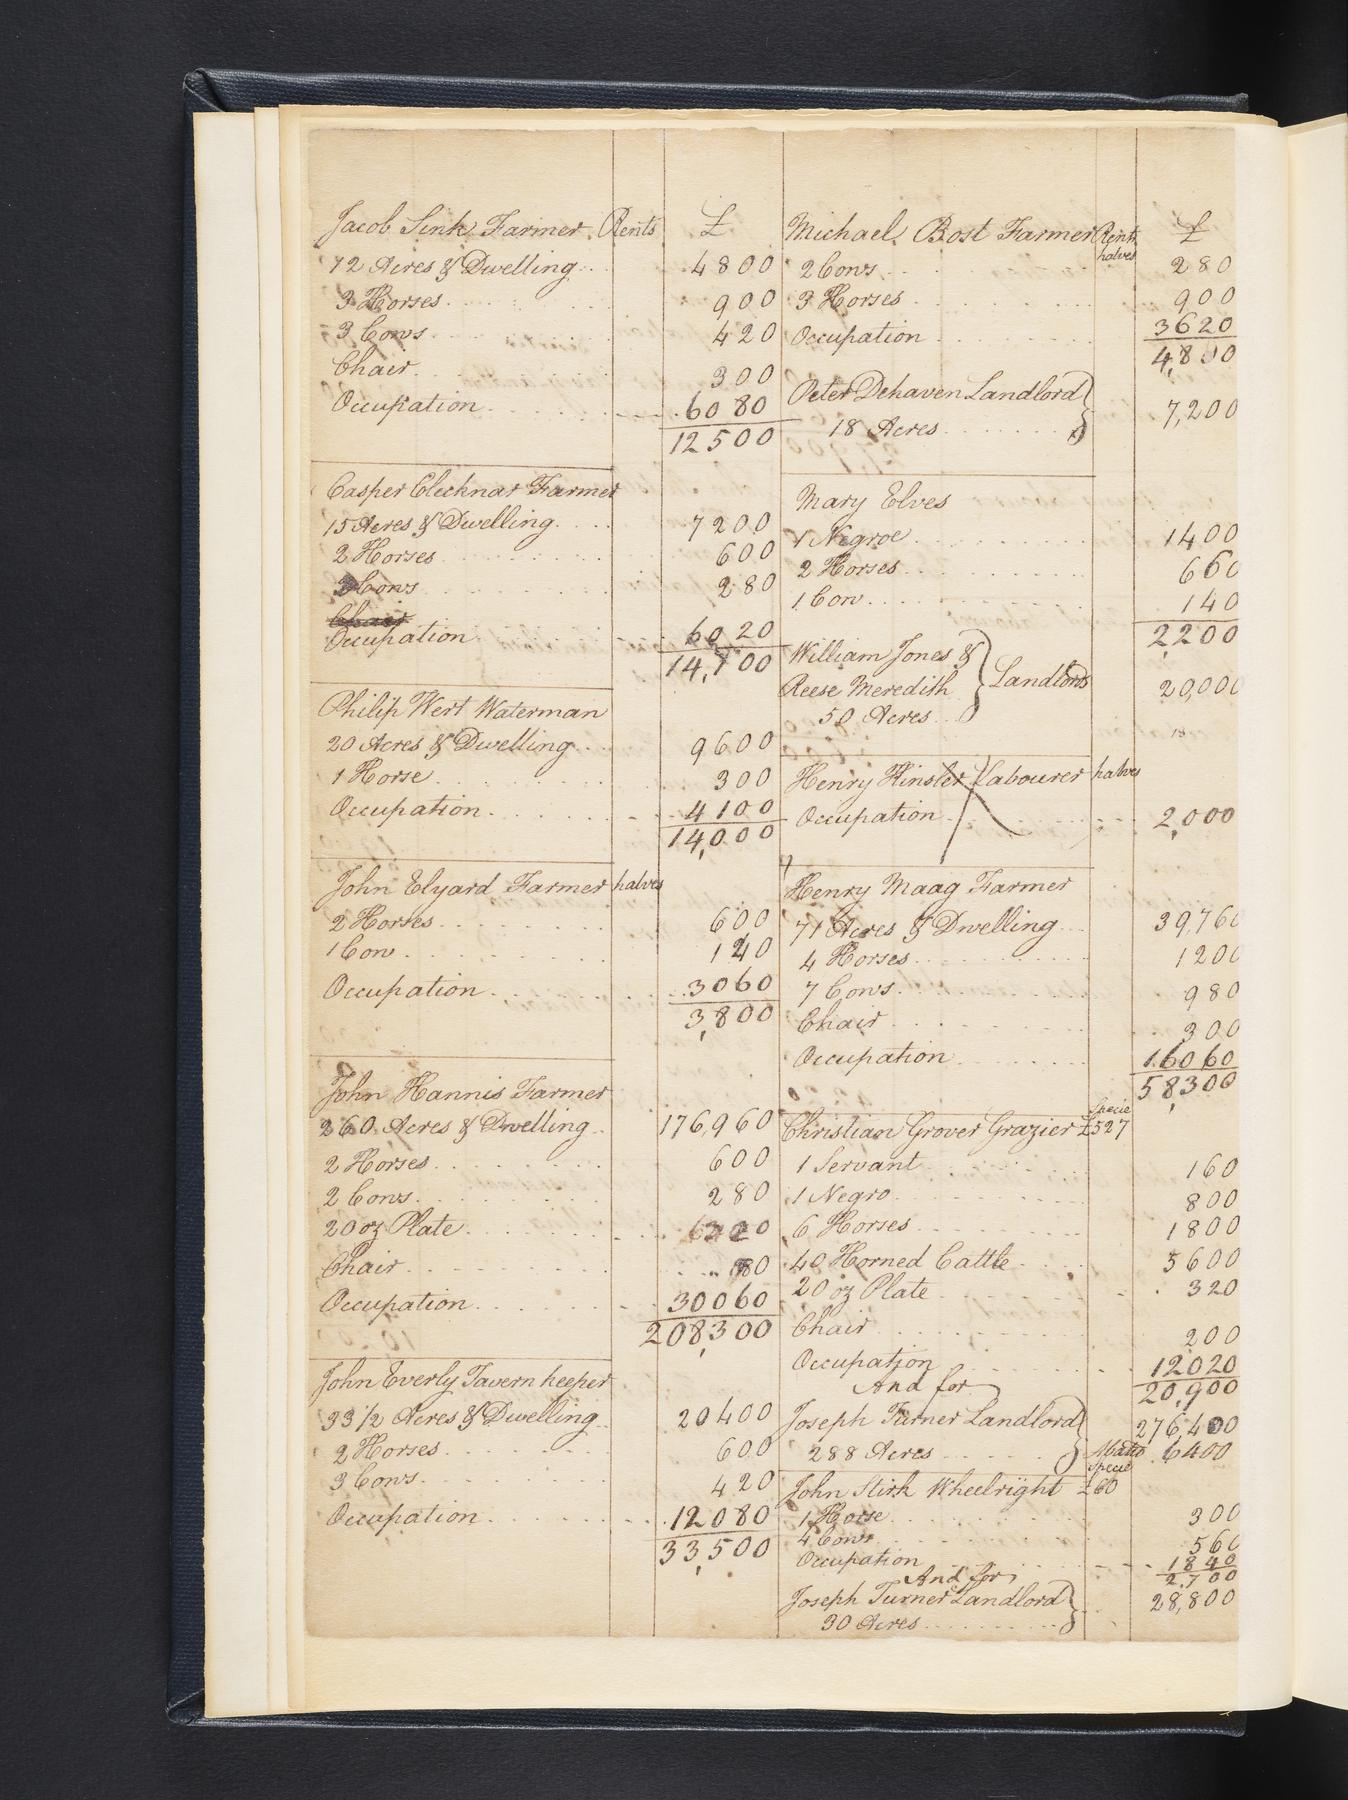 Jacob Sink Farmer Rents £
72 Acres & Dwelling 4800
3 Horses 900
3 Cows 420
Chair 300
Occupation 6080
12500
Casper Clecknar Farmer
15 Acres & Dwelling 7200
2 Horses 600
2 Cows 280
Chair
Occupation 6020
14,100
Philip Wert Waterman
20 Acres & Dwelling 9600
1 Horse 300
Occupation 4100
14,000
John Elyard Farmer halves
2 Horses 600
1 Cow 140
Occupation 3060
3,800
John Hannis Farmer
260 Acres & Dwelling 176,960
2 Horses 600
2 Cows 280
20 oz Plate
Chair 80
Occupation 30060
208,300
John Everly Tavern keeper
33 1/2 Acres & Dwelling 20400
2 Horses 600
3 Cows 420
Occupation 12080
33,500
Michael Bost Farmer Rents halves £
2 Cows 280
3 Horses 900
Occupation 3620
4,800
Peter Dehaven Landlord
18 Acres 7,200
Mary Elves
1 Negroe 1400
2 Horses 660
1 Cow 140
2,200
William Jones &
Reese Meredith Landlords 20,000
50 Acres
Henry Hinsler Labourer halves
Occupation 2,000
Henry Maag Farmer
71 Acres & Dwelling 39,760
4 Horses 1200
7 Cows 980
Chair 300
Occupation 16060
58,300
Christian Grover Grazier Specie £527
1 Servant 160
1 Negro 800
6 Horses 1800
40 Horned Cattle 5600
20 oz Plate 320
Chair 200
Occupation 12020
20,900
And for
Joseph Turner Landlord 276,400
288 Acres 6400
John Stirk Wheelright specie £60
1 Horse 300
4 Cows 560
Occupation 1840
2,700
And for
Joseph Turner Landlord 28,800
30 Acres